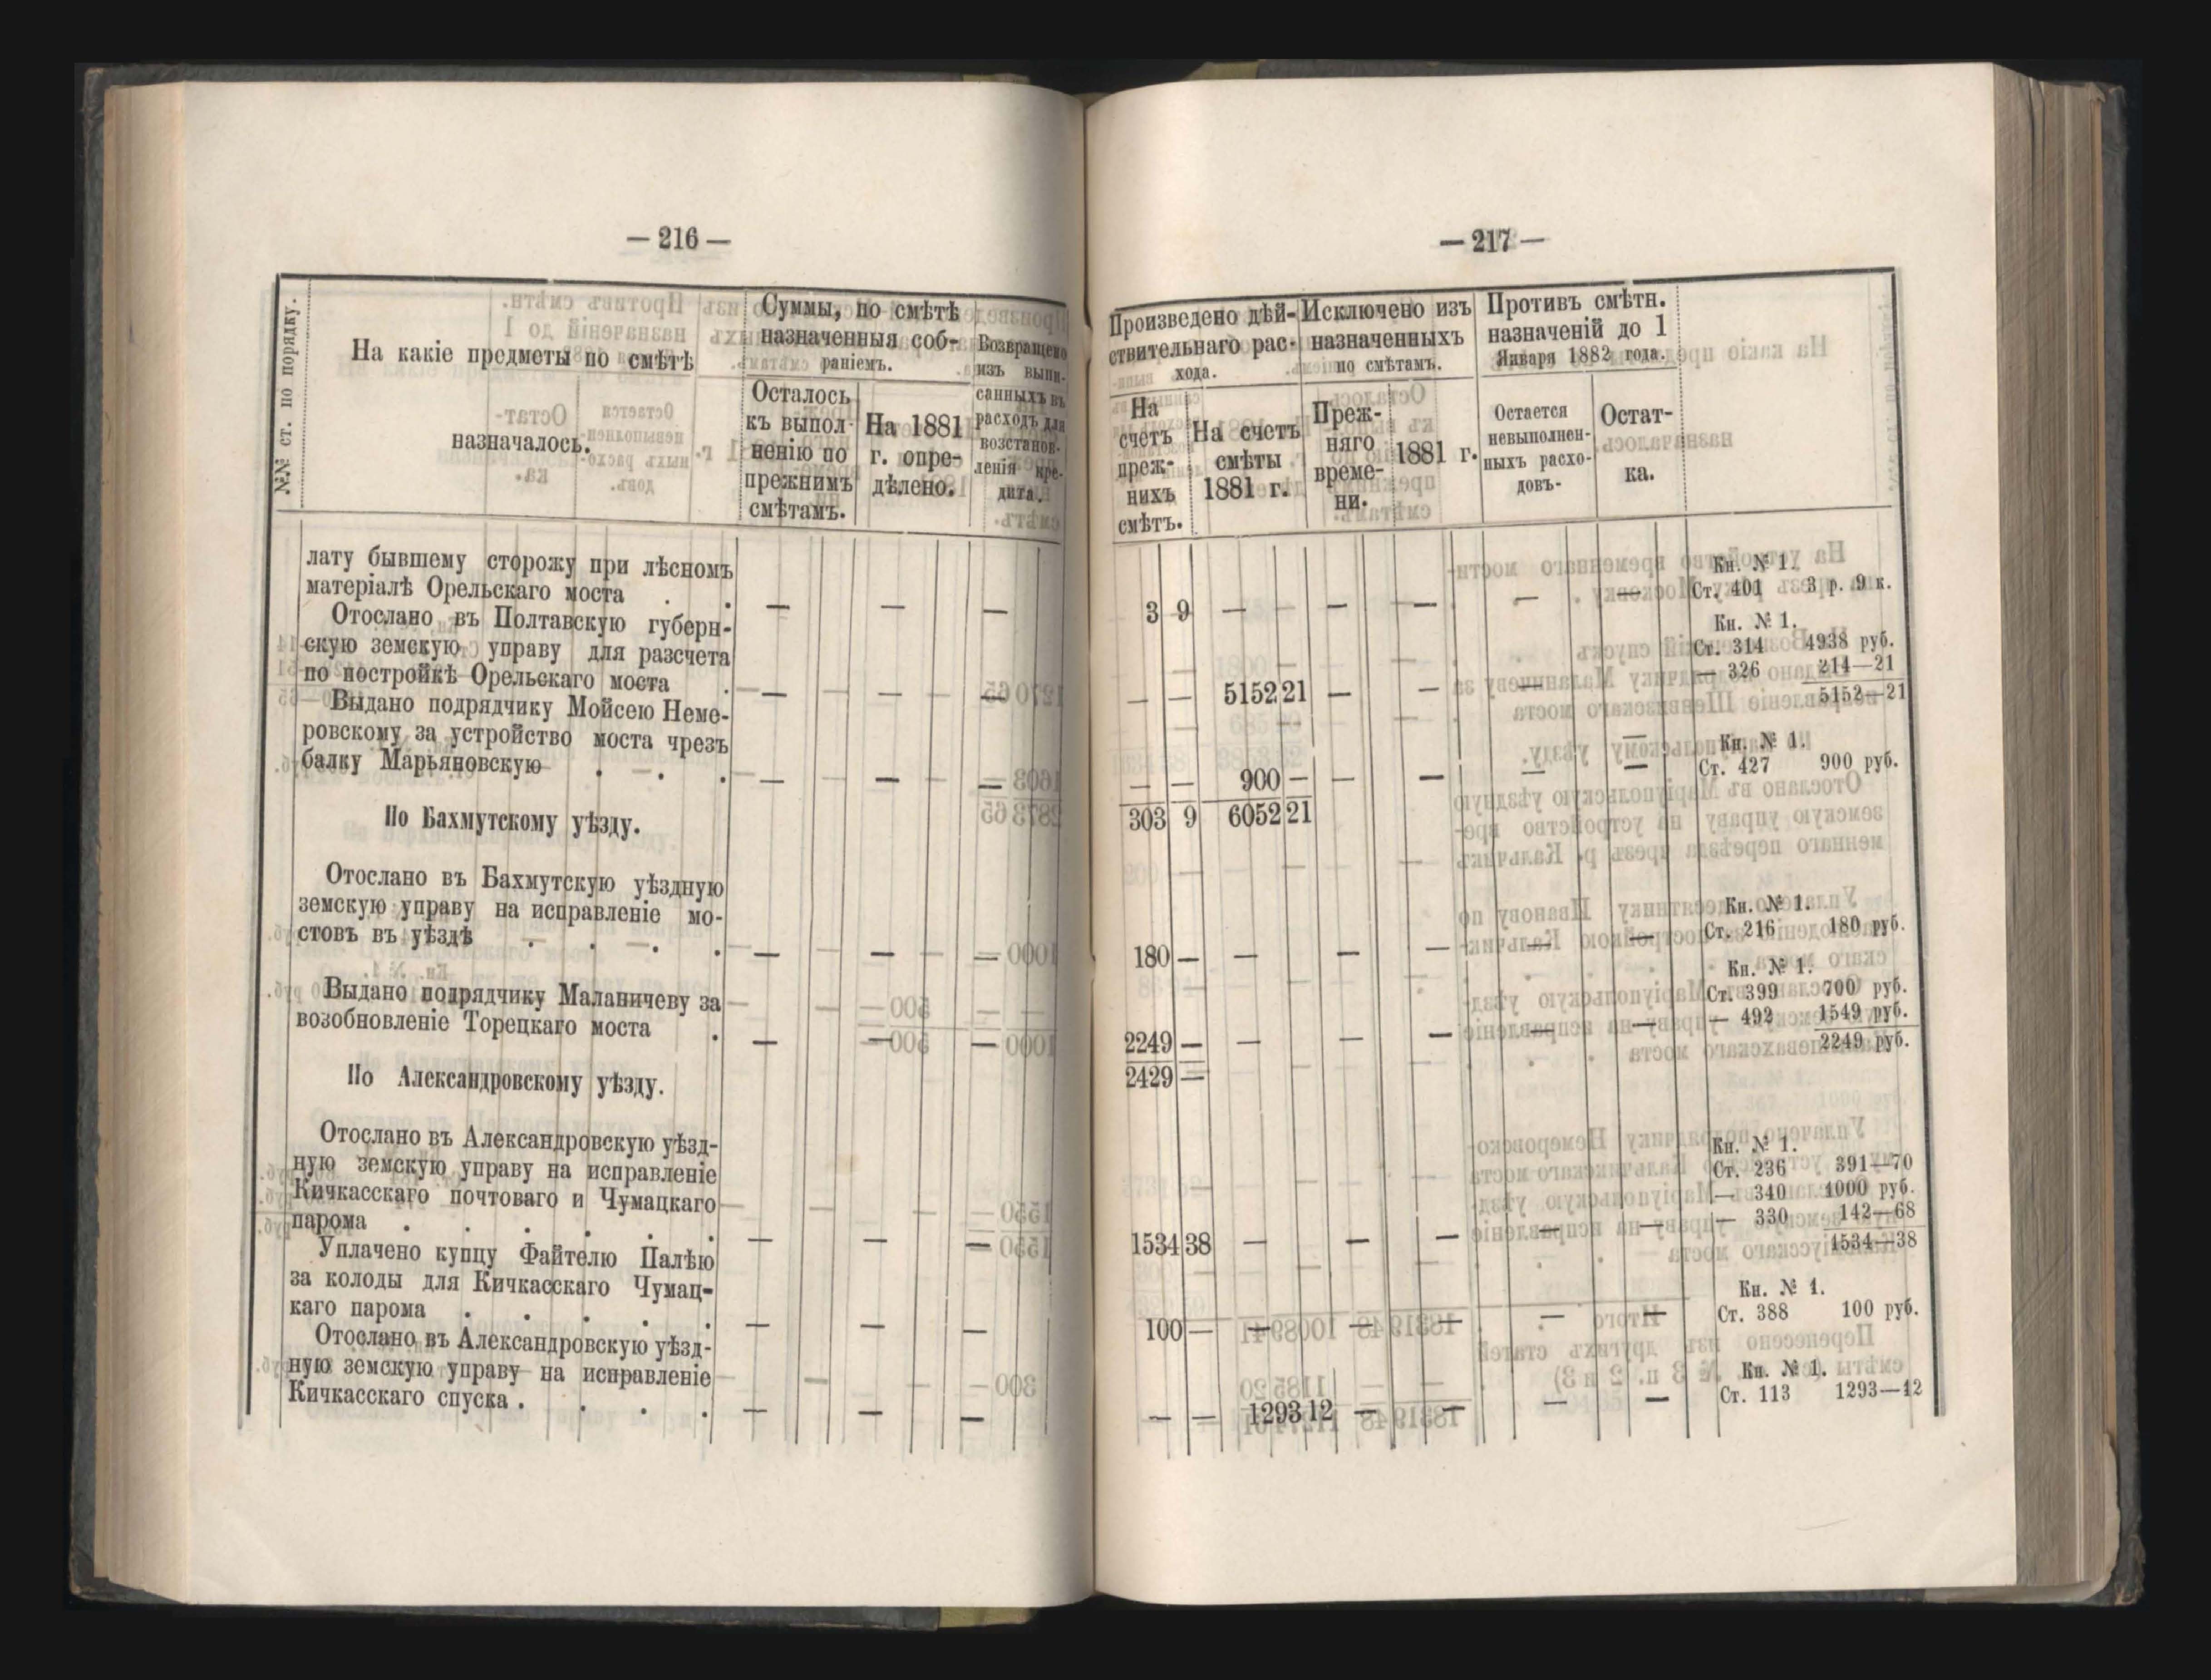 — 216 —
№№ ст. по порядку.
На какіе предметы по смѣтѣ
назначалось.
Суммы, по смѣтѣ
назначенныя соб-
раніемъ.
Осталось
къ выпол-
ненію по
прежнимъ
смѣтамъ.
На 1881
г. опре-
дѣлено.
Возвращено
изъ выпи-
санныхъ въ
расходъ для
возстанов-
ленія кре-
дита.
лату бывшему сторожу при лѣсномъ
матеріалѣ Орельскаго моста . . — — —
Отослано въ Полтавскую губерн-
скую земскую управу для разсчета
по постройкѣ Орельскаго моста . — — —
Выдано подрядчику Мойсею Неме-
ровскому за устройство моста чрезъ
балку Марьяновскую . . . — — —
По Бахмутскому уѣзду.
Отослано въ Бахмутскую уѣздную
земскую управу на исправленіе мо-
стовъ въ уѣздѣ . . . . — — —
Выдано подрядчику Маланичеву за
возобновленіе Торецкаго моста . — — —
По Александровскому уѣзду.
Отослано въ Александровскую уѣзд-
ную земскую управу на исправленіе
Кичкасскаго почтоваго и Чумацкаго
парома . . . . . . — — —
Уплачено купцу Файтелю Палѣю
за колоды для Кичкасскаго Чумац-
каго парома . . . . . — — —
Отослано въ Александровскую уѣзд-
ную земскую управу на исправленіе
Кичкасскаго спуска . . . . — — —
— 217 —
Произведено дѣй-
ствительнаго рас-
хода.
На
счетъ
преж-
нихъ
смѣтъ.
На счетъ
смѣты
1881 г.
Исключено изъ
назначенныхъ
по смѣтамъ.
Преж-
няго
време-
ни.
1881 г.
Противъ смѣтн.
назначеній до 1
Января 1882 года.
Остается
невыполнен-
ныхъ расхо-
довъ-
Остат-
ка.
Кн. № 1.
3 9 — — — — — Ст. 401 3 р. 9 к.
Кн. № 1.
Ст. 314 4938 руб.
— 326 214—21
— — 5152 21 — — — — 5152—21
Кн. № 1.
Ст. 427 900 руб.
— — 900 — — — — —
303 9 6052 21
Кн. № 1.
Ст. 216 180 руб.
180 — — — — — —
Кн. № 1.
Ст. 399 700 руб.
— 492 1549 руб.
2249 — — — — — — 2249 руб.
2429 —
Кн. № 1.
Ст. 236 391—70
— 340 1000 руб.
— 330 142—68
1534 38 — — — — — 1534—38
Кн. № 1.
Ст. 388 100 руб.
100 — — — — — —
Кн. № 1.
Ст. 113 1293—12
— — 1293 12 — — — —